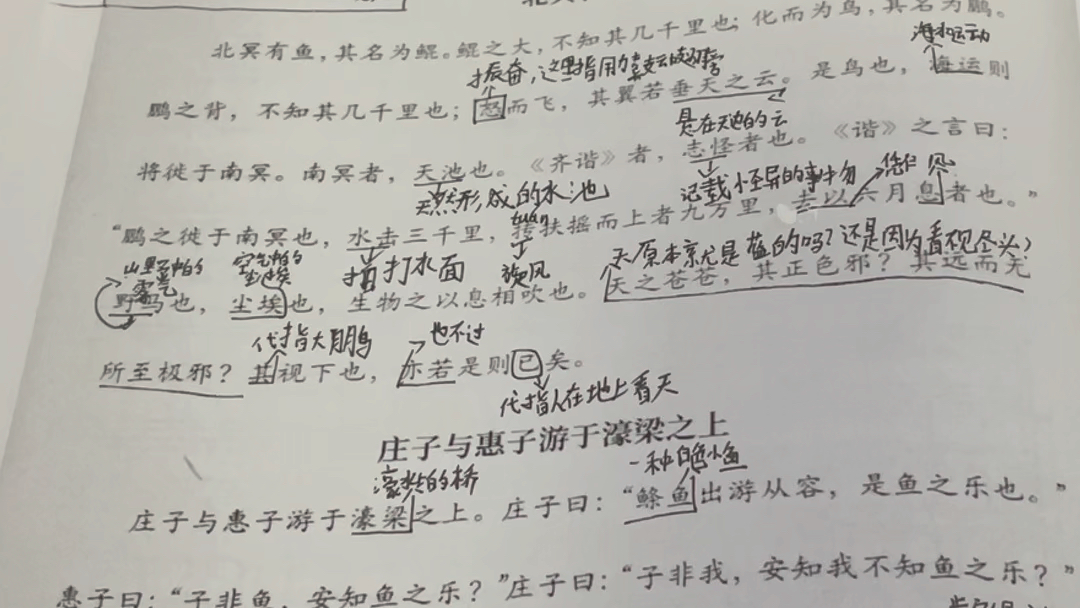 北冥有鱼，其名为鲲。鲲之大，不知其几千里也；化而为鸟，其名为鹏。
海水运动
振奋，这里指用力鼓动翅膀
鹏之背，不知其几千里也；怒而飞，其翼若垂天之云。是鸟也，海运则
悬在天边的云
将徙于南冥。南冥者，天池也。《齐谐》者，志怪者也。《谐》之言曰：
天然形成的水池
记载 怪异的事物
凭借 风
“鹏之徙于南冥也，水击三千里，抟扶摇而上者九万里，去以六月息者也。”
tuán
拍打水面
旋风
天原本就是蓝的吗？还是因为看不到尽头？
山野里的雾气
空气中的尘埃
野马也，尘埃也，生物之以息相吹也。天之苍苍，其正色邪？其远而无
代指大鹏
也不过
所至极邪？其视下也，亦若是则已矣。
代指人在地上看天
庄子与惠子游于濠梁之上
濠水上的桥
一种白色小鱼
庄子与惠子游于濠梁之上。庄子曰：“鲦鱼出游从容，是鱼之乐也。”
惠子曰：“子非鱼，安知鱼之乐？”庄子曰：“子非我，安知我不知鱼之乐？”